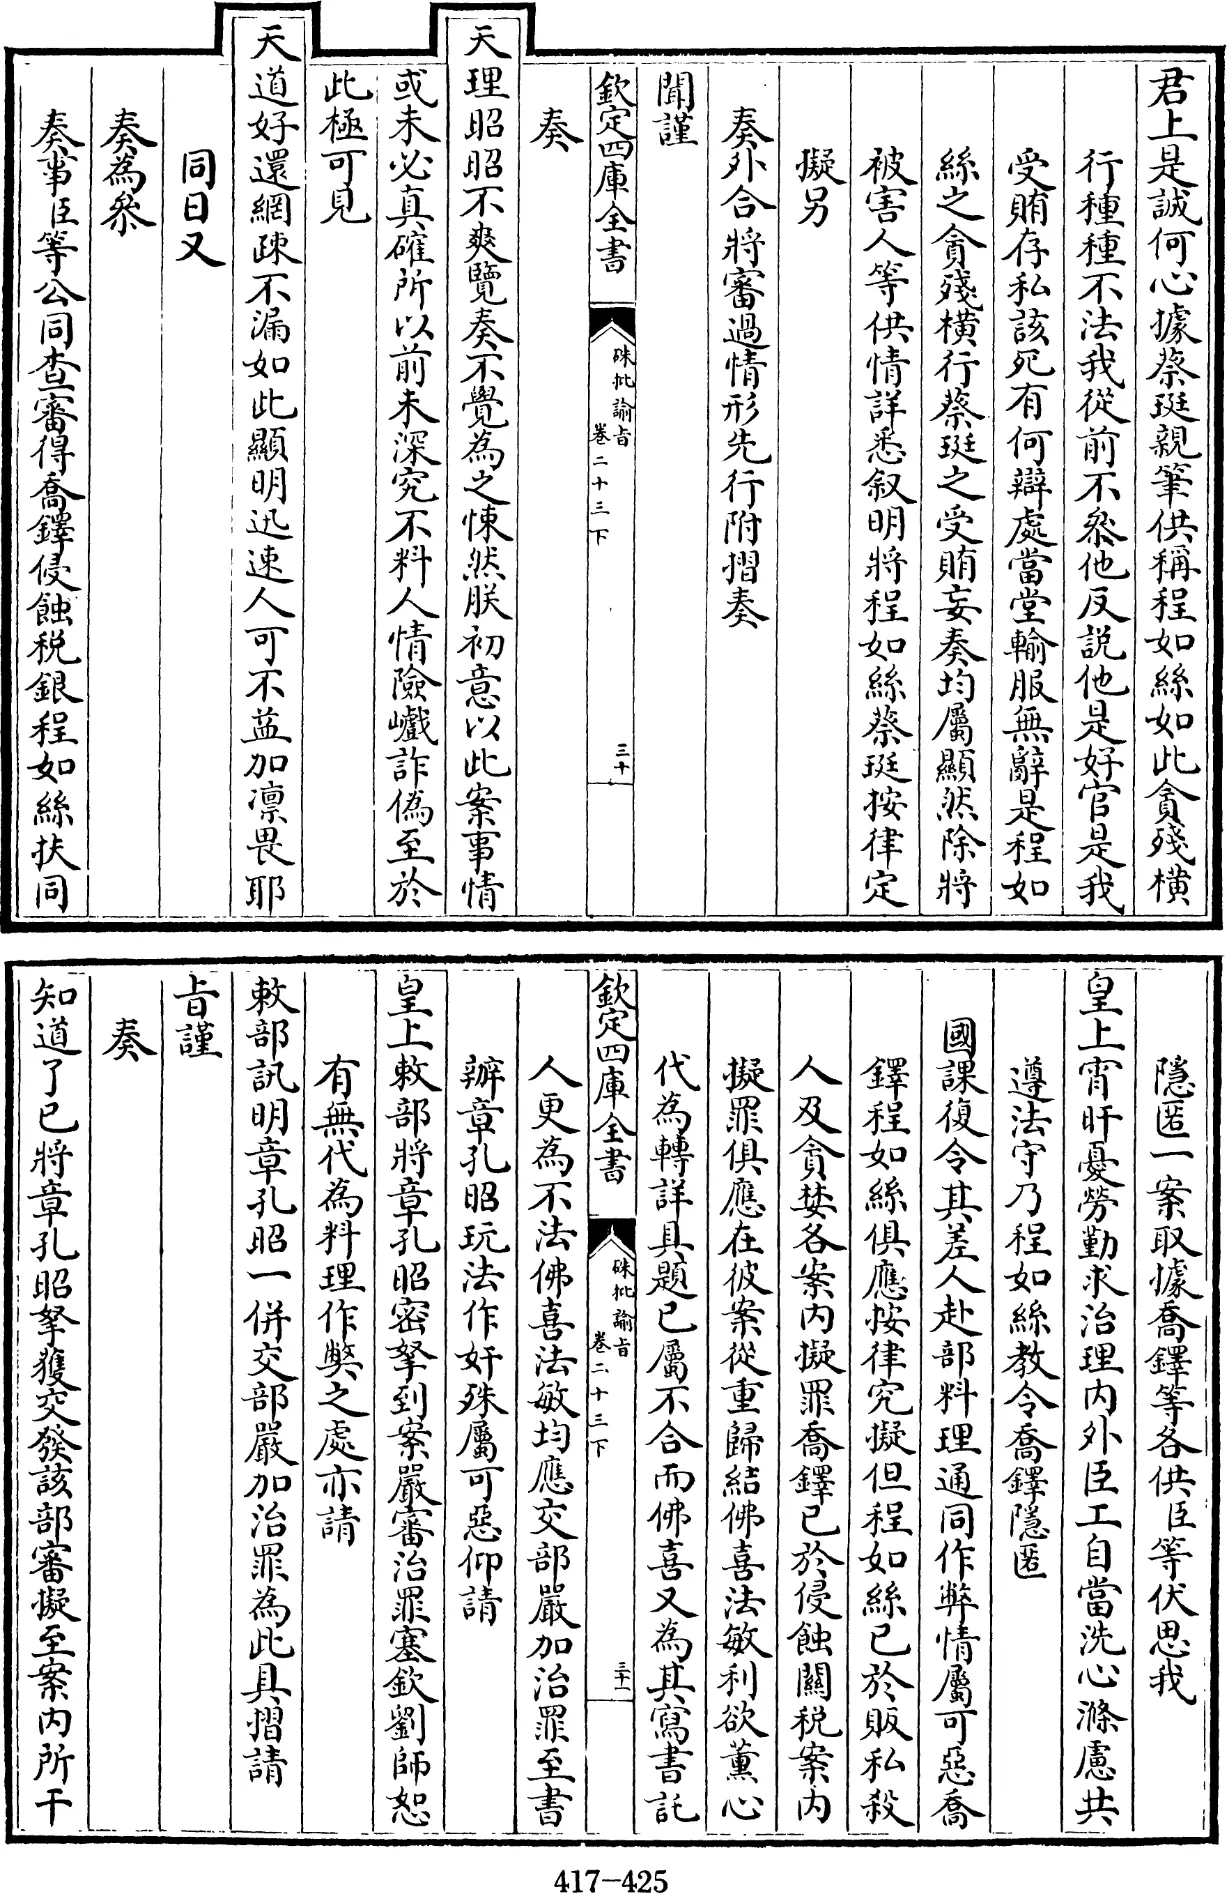 君上是誠何心據蔡珽親筆供稱程如絲如此貪殘橫
行種種不法我從前不叅他反説他是好官是我
受賄存私該死有何辯處當堂輸服無辭是程如
絲之貪殘橫行蔡珽之受賄妄奏均屬顯然除將
被害人等供情詳悉叙明將程如絲蔡珽按律定
擬另
奏外合將審過情形先行附摺奏
聞謹
欽定四庫全書
硃批諭旨
卷二十三下
三十
奏
天理昭昭不爽覽奏不覺為之悚然朕初意以此案事情
或未必真確所以前未深究不料人情險巇詐偽至於
此極可見
天道好還網疎不漏如此顯明迅速人可不益加凛畏耶
同日又
奏為叅
奏事臣等公同查審得喬鐸侵蝕税銀程如絲扶同
隱匿一案取據喬鐸等各供臣等伏思我
皇上宵旰憂勞勤求治理内外臣工自當洗心滌慮共
遵法守乃程如絲教令喬鐸隱匿
國課復令其差人赴部料理通同作弊情屬可惡喬
鐸程如絲俱應按律究擬但程如絲已於販私殺
人及貪婪各案内擬罪喬鐸已於侵蝕關税案内
擬罪俱應在彼案從重歸結佛喜法敏利欲薰心
代為轉詳具題已屬不合而佛喜又為其寫書託
欽定四庫全書
硃批諭旨
卷二十三下
三十一
人更為不法佛喜法敏均應交部嚴加治罪至書
辦章孔昭玩法作奸殊屬可惡仰請
皇上敕部將章孔昭密拏到案嚴審治罪塞欽劉師恕
有無代為料理作弊之處亦請
敕部訊明章孔昭一併交部嚴加治罪為此具摺請
旨謹
奏
知道了已將章孔昭拏獲交發該部審擬至案内所干
417-425